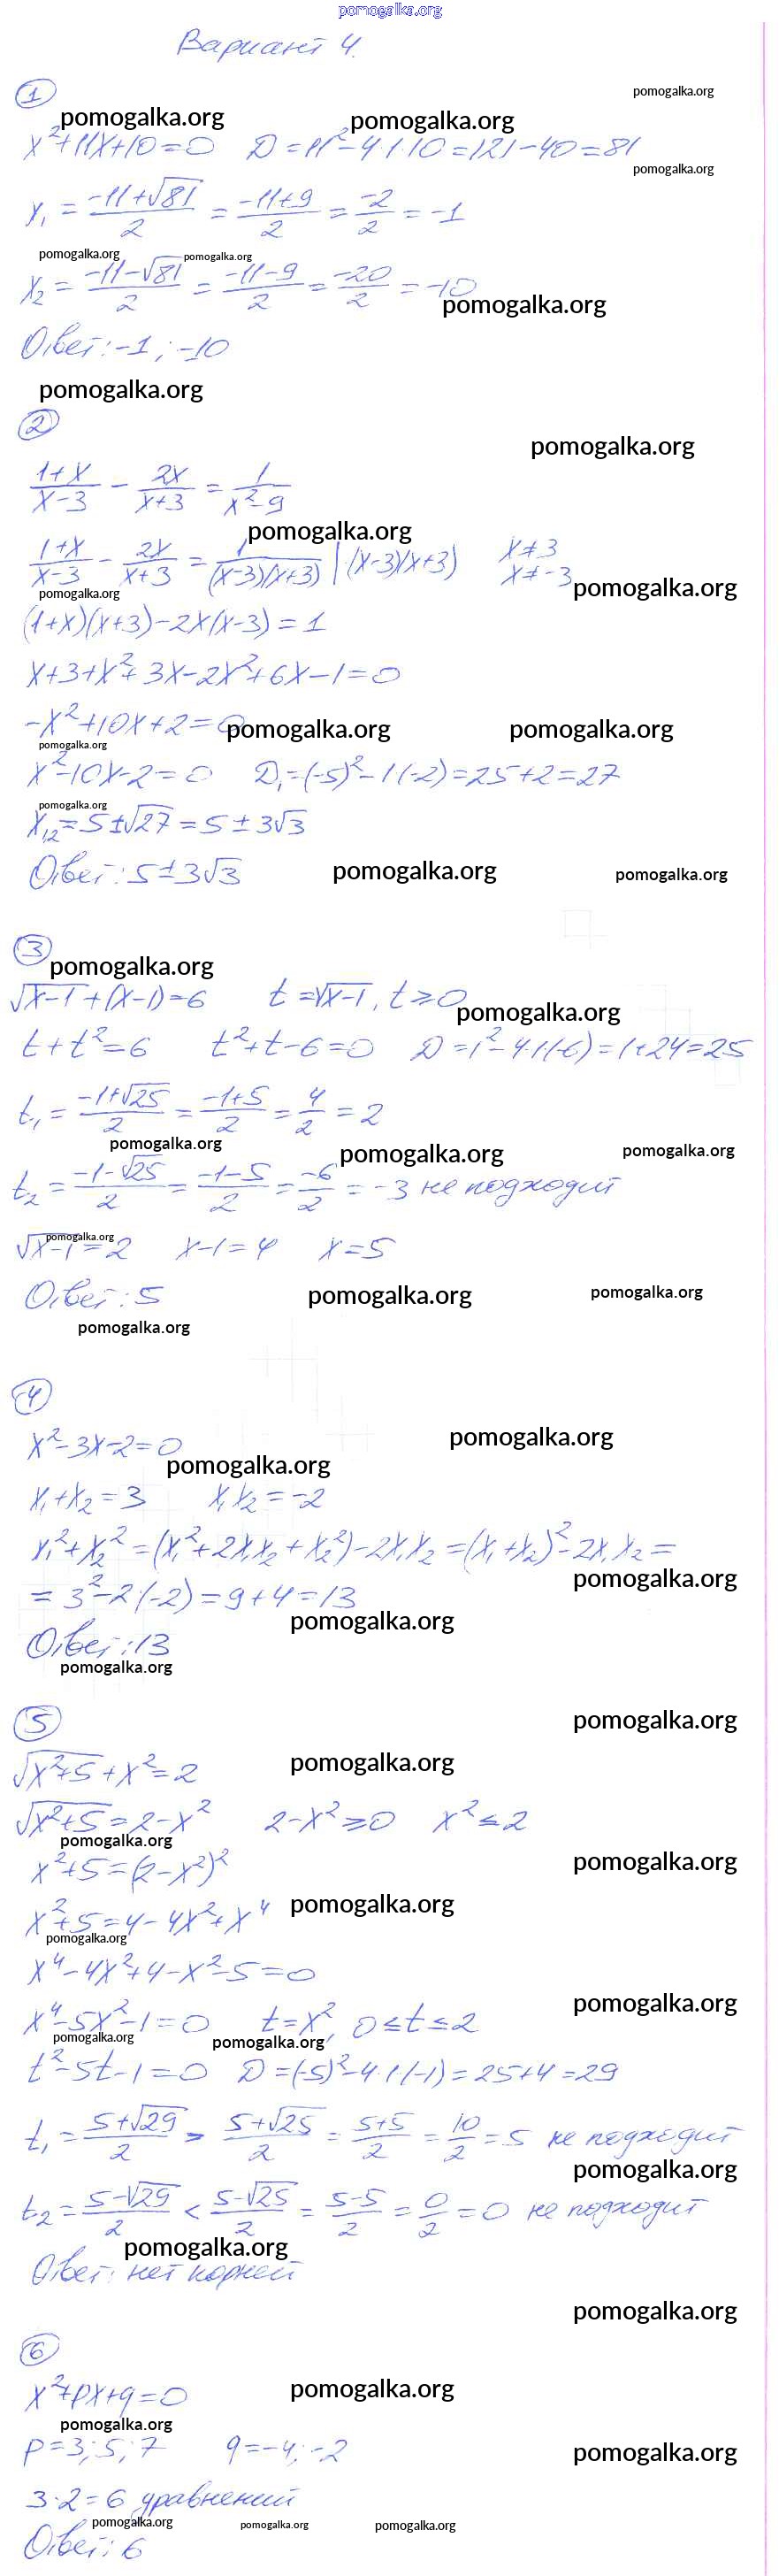 pomogalka.org
Вариант 4.
1
pomogalka.org
pomogalka.org pomogalka.org
x²+11x+10=0 D=11²-4·1·10=121-40=81
pomogalka.org
x₁ = (-11+√81)/2 = (-11+9)/2 = -2/2 = -1
pomogalka.org pomogalka.org
x₂ = (-11-√81)/2 = (-11-9)/2 = -20/2 = -10
pomogalka.org
Ответ: -1; -10
pomogalka.org
2
pomogalka.org
(1+x)/(x-3) - 2x/(x+3) = 1/(x²-9)
pomogalka.org
(1+x)/(x-3) - 2x/(x+3) = 1/((x-3)(x+3)) | ·(x-3)(x+3) x≠3
x≠-3
pomogalka.org pomogalka.org
(1+x)(x+3)-2x(x-3)=1
x+3+x²+3x-2x²+6x-1=0
-x²+10x+2=0
pomogalka.org pomogalka.org
pomogalka.org
x²-10x-2=0 D₁=(-5)²-1·(-2)=25+2=27
pomogalka.org
x₁,₂=5±√27=5±3√3
Ответ: 5±3√3
pomogalka.org pomogalka.org
3
pomogalka.org
√(x-1)+(x-1)=6 t=√(x-1), t≥0
pomogalka.org
t+t²=6 t²+t-6=0 D=1²-4·1·(-6)=1+24=25
t₁ = (-1+√25)/2 = (-1+5)/2 = 4/2 = 2
pomogalka.org pomogalka.org pomogalka.org
t₂ = (-1-√25)/2 = (-1-5)/2 = -6/2 = -3 не подходит
pomogalka.org
√(x-1)=2 x-1=4 x=5
Ответ: 5
pomogalka.org pomogalka.org
pomogalka.org
4
x²-3x-2=0
pomogalka.org
pomogalka.org
x₁+x₂=3 x₁x₂=-2
x₁²+x₂²=(x₁²+2x₁x₂+x₂²)-2x₁x₂=(x₁+x₂)²-2x₁x₂=
pomogalka.org
=3²-2·(-2)=9+4=13
pomogalka.org
Ответ: 13
pomogalka.org
5
pomogalka.org
√(x²+5)+x²=2
pomogalka.org
√(x²+5)=2-x² 2-x²≥0 x²≤2
pomogalka.org
x²+5=(2-x²)²
pomogalka.org
x²+5=4-4x²+x⁴
pomogalka.org
pomogalka.org
x⁴-4x²+4-x²-5=0
pomogalka.org
x⁴-5x²-1=0 t=x², 0≤t≤2
pomogalka.org pomogalka.org
t²-5t-1=0 D=(-5)²-4·1·(-1)=25+4=29
t₁ = (5+√29)/2 > (5+√25)/2 = (5+5)/2 = 10/2 = 5 не подходит
pomogalka.org
t₂ = (5-√29)/2 < (5-√25)/2 = (5-5)/2 = 0/2 = 0 не подходит
pomogalka.org
Ответ: нет корней
pomogalka.org
6
x²+px+q=0
pomogalka.org
pomogalka.org
p=3; 5; 7 q=-4; -2
pomogalka.org
3·2=6 уравнений
pomogalka.org pomogalka.org pomogalka.org
Ответ: 6